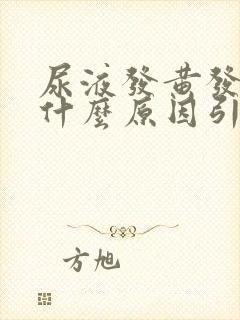 尿液發黃發
什麼原因引
方旭